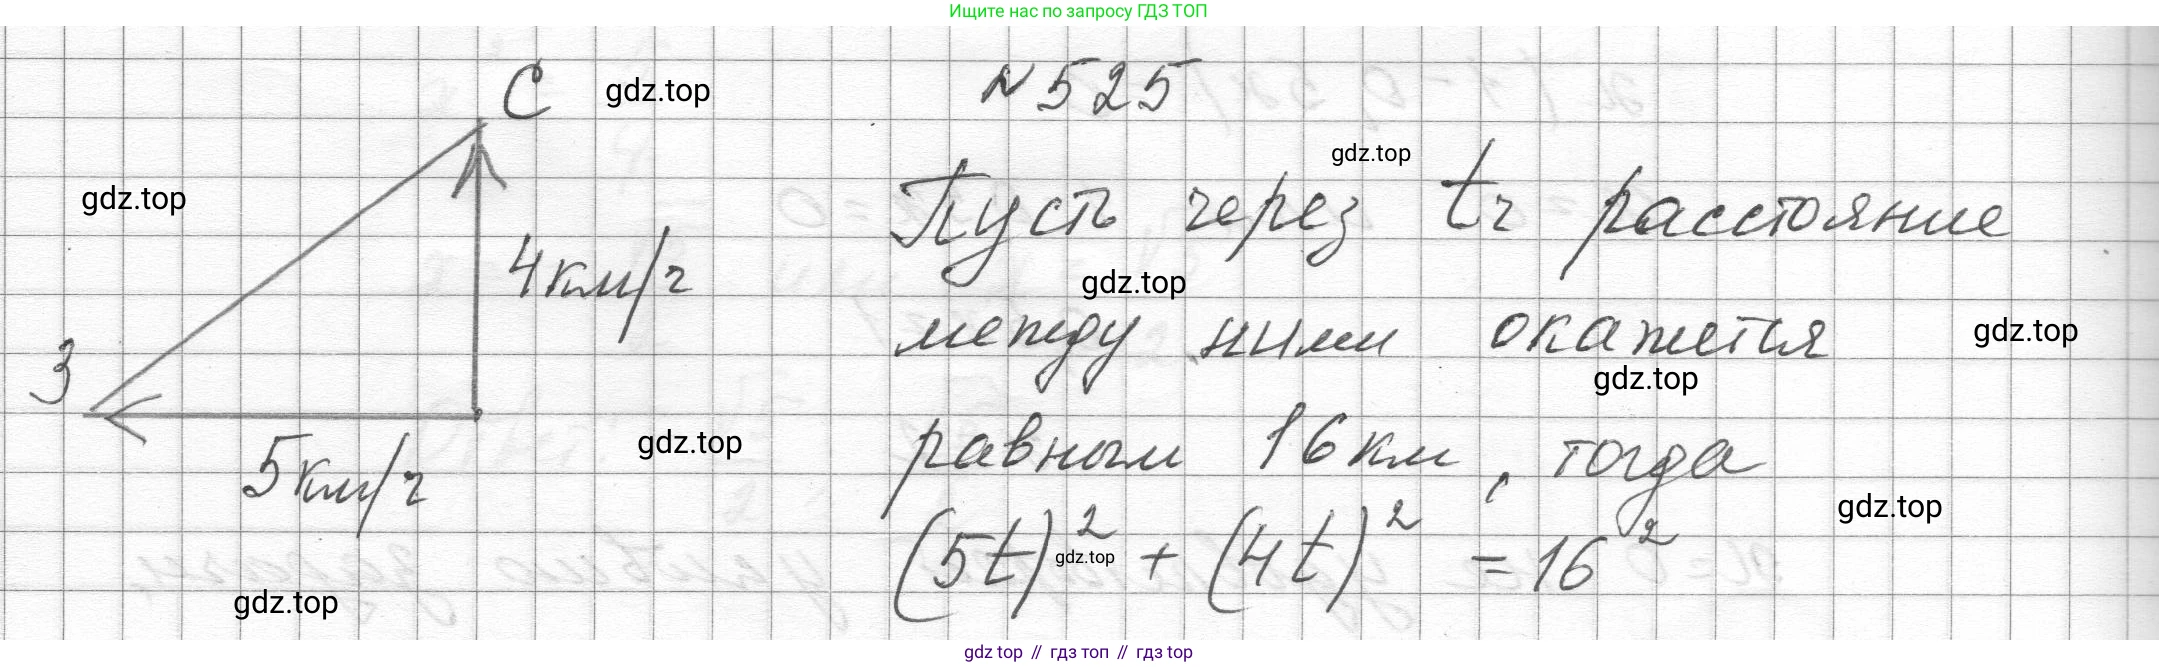 Ищите нас по запросу ГДЗ ТОП
С
gdz.top
N 525
gdz.top
gdz.top
Пусть через t ч расстояние
4 км/ч
gdz.top
между ними окажется
gdz.top
З
gdz.top
равным 16 км, тогда
gdz.top
5 км/ч
gdz.top
(5t)² + (4t)² = 16²
gdz.top
gdz.top
gdz top // гдз топ // гдз top